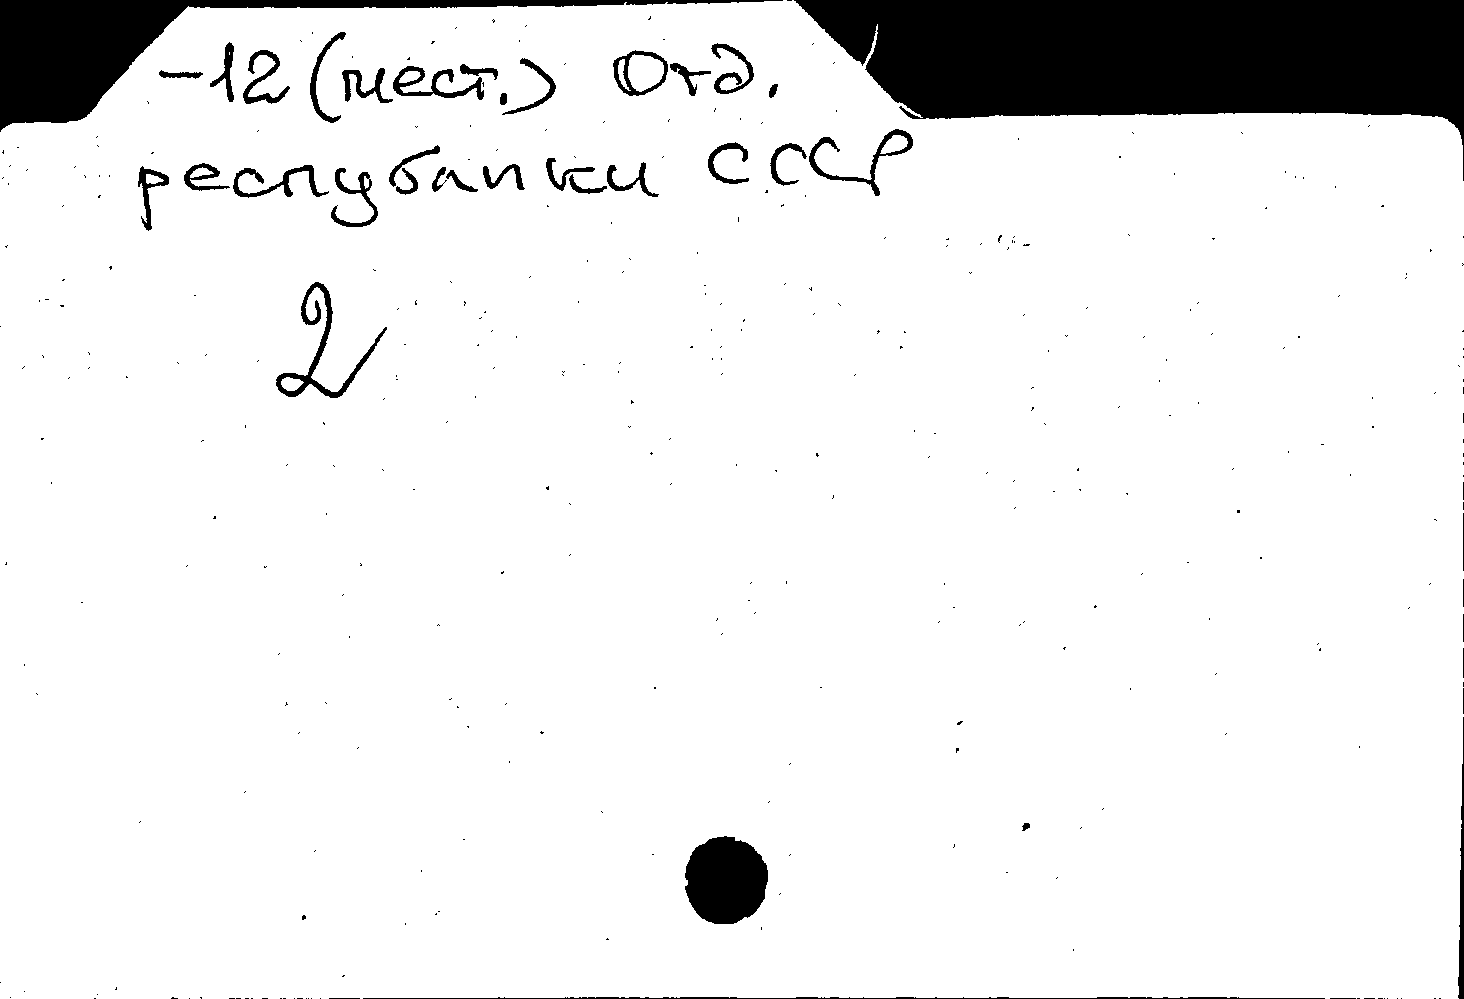 -12 (мест.) Отд.
республики СССР
2